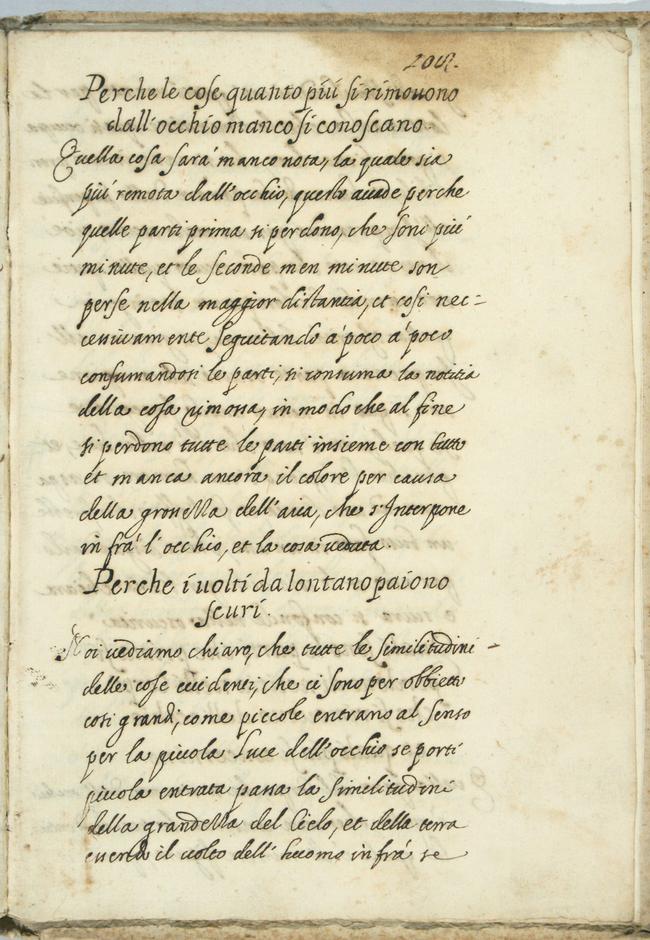 Perche le cose quanto piú si rimouono
dall'occhio manco si conoscano.
Quella cosa sará manco nota, la quale sia
piú remota dall'occhio, questo auade perche
quelle parti prima si perdono, che sono piú
minute, et le seconde men minute son
perse nella maggior distantia, et cosi nec=
cessiuamente seguitando á poco á poco
consumandosi le parti, si consuma la notitia
della cosa rimossa, in modo che al fine
si perdono tutte le parti insieme con tutto
et manca ancora il colore per causa
della grossezza dell'aria, che s'Interpone
infrá l'occhio, et la cosa ueduta.
Perche i uolti da lontano paiono
scuri.
Noi uediamo chiaro, che tutte le similitudini
delle cose euidenti, che ci sono per obbietto
cosi grandi, come piccole entrano al senso
per la piccola Luce dell'occhio se per si
piccola entrata passa la similitudini
della grandezza del Cielo, et della terra
essendo il uolto dell'huomo infrá se